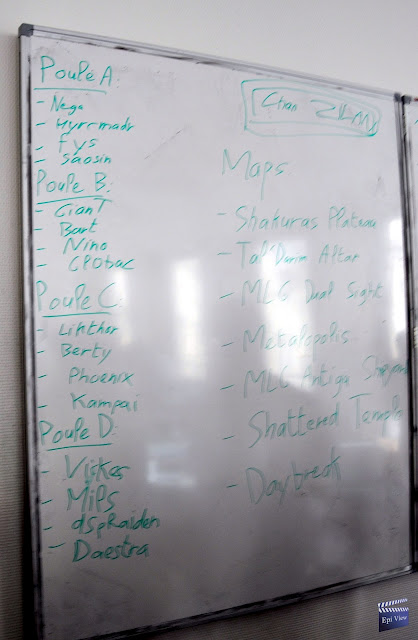 Poule A:
- Nega
- Hyrcmadr
- Fys
- Saosin
Poule B:
- GianT
- Bart
- Nino
- CPObac
Poule C:
- Likthor
- Berty
- Phoenix
- Kampai
Poule D:
- Viskes
- Mips
- dspRaiden
- Daestra
Chan
Maps
- Shakuras Plateau
- Tal'Darim Altar
- MLG Dual Sight
- Metalopolis
- MLG Antiga Shipyard
- Shattered Temple
- Daybreak
Epi View